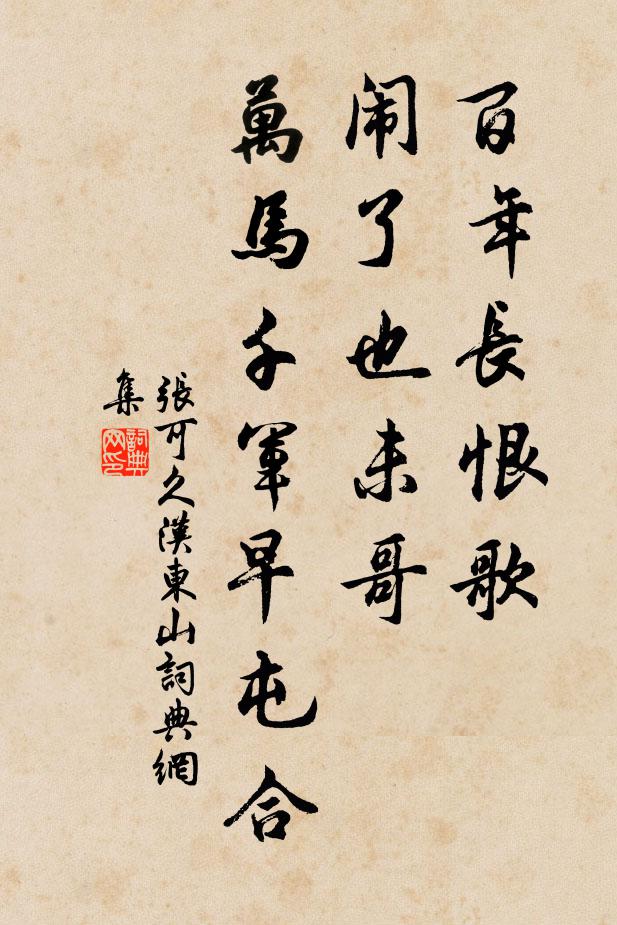 百年長恨歌
闹了也未哥
萬馬千軍早屯合
張可久漢東山詞典網
集
詞典网印